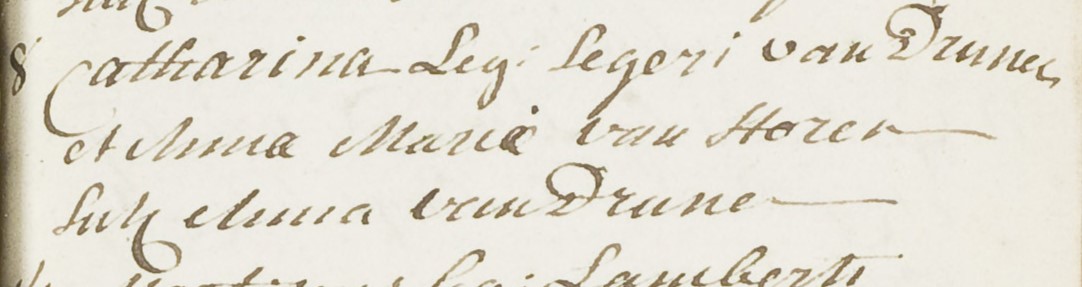 8 Catharina Leg: Segeri van Drunen
et Anna Maria van Horen
Sus: Anna van Drunen
Leg: Lamberti